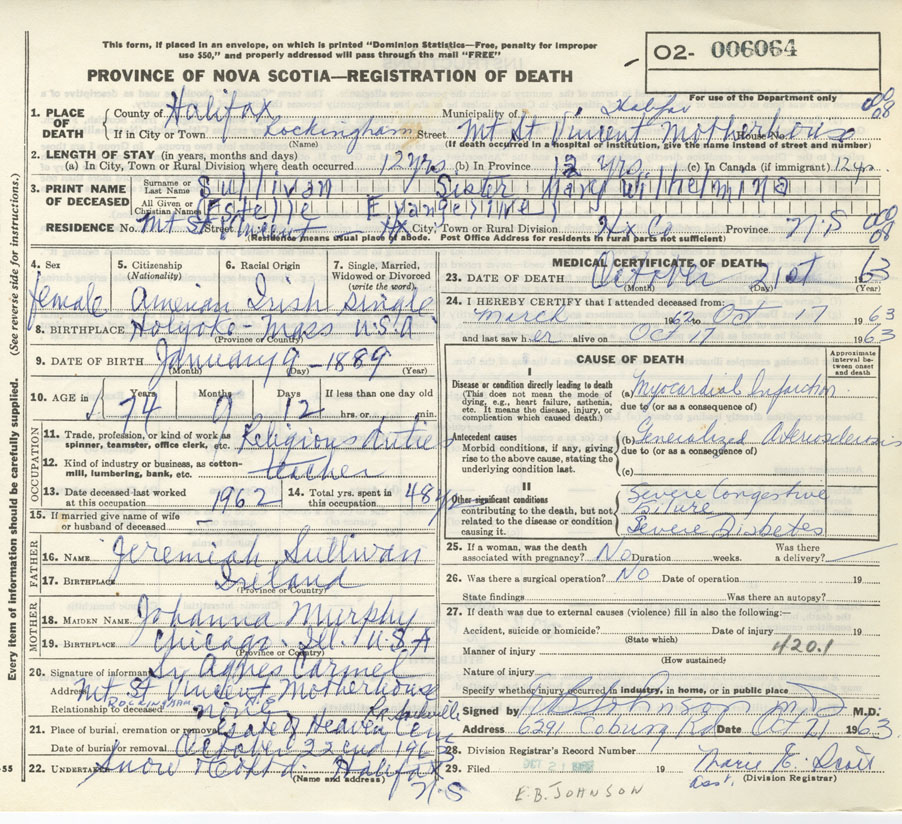 This form, if placed in an envelope, on which is printed "Dominion Statistics—Free, penalty for improper
use $50," and properly addressed will pass through the mail "FREE"
O2- 006064
PROVINCE OF NOVA SCOTIA—REGISTRATION OF DEATH
For use of the Department only
1. PLACE OF DEATH County of Halifax Municipality of Halifax
If in City or Town Rockingham Street Mt St Vincent Motherhouse House No.
(Name) (If death occurred in a hospital or institution, give the name instead of street and number)
2. LENGTH OF STAY (in years, months and days)
(a) In City, Town or Rural Division where death occurred 12 yrs. (b) In Province 12 yrs. (c) In Canada (if immigrant) 12 yrs
3. PRINT NAME OF DECEASED Surname or Last Name Sullivan Sister Mary Wilhelmina
All Given or Christian Names (Estelle Evangeline)
RESIDENCE No. Mt St Vincent Street Hx City, Town or Rural Division Hx Co Province N.S
(Residence means usual place of abode. Post Office Address for residents in rural parts not sufficient)
4. Sex female
5. Citizenship (Nationality) American
6. Racial Origin Irish
7. Single, Married, Widowed or Divorced (write the word) Single
8. BIRTHPLACE Holyoke - Mass U.S.A
(Province or Country)
9. DATE OF BIRTH January 9 - 1889
(Month) (Day) (Year)
10. AGE in Years 74 Months 9 Days 12 If less than one day old
hrs. or min.
OCCUPATION
11. Trade, profession, or kind of work as spinner, teamster, office clerk, etc. Religious duties
12. Kind of industry or business, as cotton-mill, lumbering, bank, etc. teacher
13. Date deceased last worked at this occupation 1962
14. Total yrs. spent in this occupation 48 yrs
15. If married give name of wife or husband of deceased –
FATHER
16. NAME Jeremiah Sullivan
17. BIRTHPLACE Ireland
(Province or Country)
MOTHER
18. MAIDEN NAME Johanna Murphy
19. BIRTHPLACE Chicago Ill. U.S.A
(Province or Country)
20. Signature of informant Sr Agnes Carmel
Address Mt St Vincent Motherhouse
ROCKINGHAM N.S.
Relationship to deceased none
21. Place of burial, cremation or removal Gate of Heaven Cem
Date of burial or removal October 22nd 1963
22. UNDERTAKER Snow & Co Ltd. Halifax
(Name and address) N.S
MEDICAL CERTIFICATE OF DEATH
23. DATE OF DEATH October 21st 1963
(Month) (Day) (Year)
24. I HEREBY CERTIFY that I attended deceased from:
March 1962 to Oct 17 1963
and last saw her alive on Oct 17 1963
CAUSE OF DEATH
Approximate interval between onset and death
I
Disease or condition directly leading to death
(This does not mean the mode of dying, e.g., heart failure, asthenia, etc. It means the disease, injury, or complication which caused death.)
(a) Myocardial Infarction
due to (or as a consequence of)
Antecedent causes
Morbid conditions, if any, giving rise to the above cause, stating the underlying condition last.
(b) Generalized Arteriosclerosis
due to (or as a consequence of)
(c)
II
Other significant conditions
contributing to the death, but not related to the disease or condition causing it.
Severe Congestive
Failure
Severe Diabetes
25. If a woman, was the death associated with pregnancy? No Duration weeks. Was there a delivery?
26. Was there a surgical operation? No Date of operation 19
State findings Was there an autopsy?
27. If death was due to external causes (violence) fill in also the following:—
Accident, suicide or homicide? Date of injury 19
(State which)
Manner of injury 420.1
(How sustained)
Nature of injury
Specify whether injury occurred in industry, in home, or in public place
Signed by E B Johnson MD M.D.
Address 6291 Coburg Rd Date Oct 21 1963
28. Division Registrar's Record Number
29. Filed OCT 21 1963 19 Marie E. Scott
asst. (Division Registrar)
E.B. JOHNSON
Every item of information should be carefully supplied. (See reverse side for instructions.)
-55